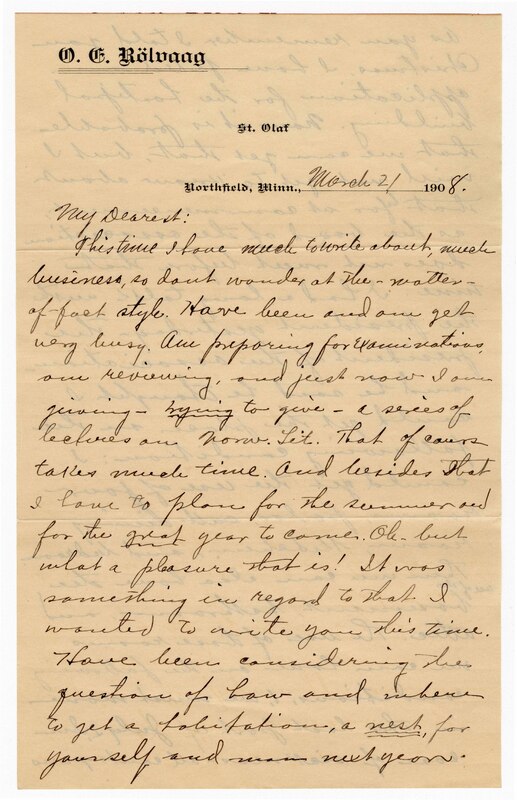 O. E. Rölvaag
St. Olaf
Northfield, Minn., March 21 1908.
My Dearest:
This time I have much to write about, much
business, so dont wonder at the - matter -
of - fact style. Have been and am yet
very busy. Am preparing for examinations,
am reviewing, and just now I am
giving - trying to give - a series of
lectures on Norw. Lit. That of cours
takes much time. And besides that
I have to plan for the summer and
for the great year to come. Oh - but
what a pleasure that is! It was
something in regard to that I
wanted to write you this time.
Have been considering the
question of how and where
to get a habitation, a nest, for
yourself and man next year.